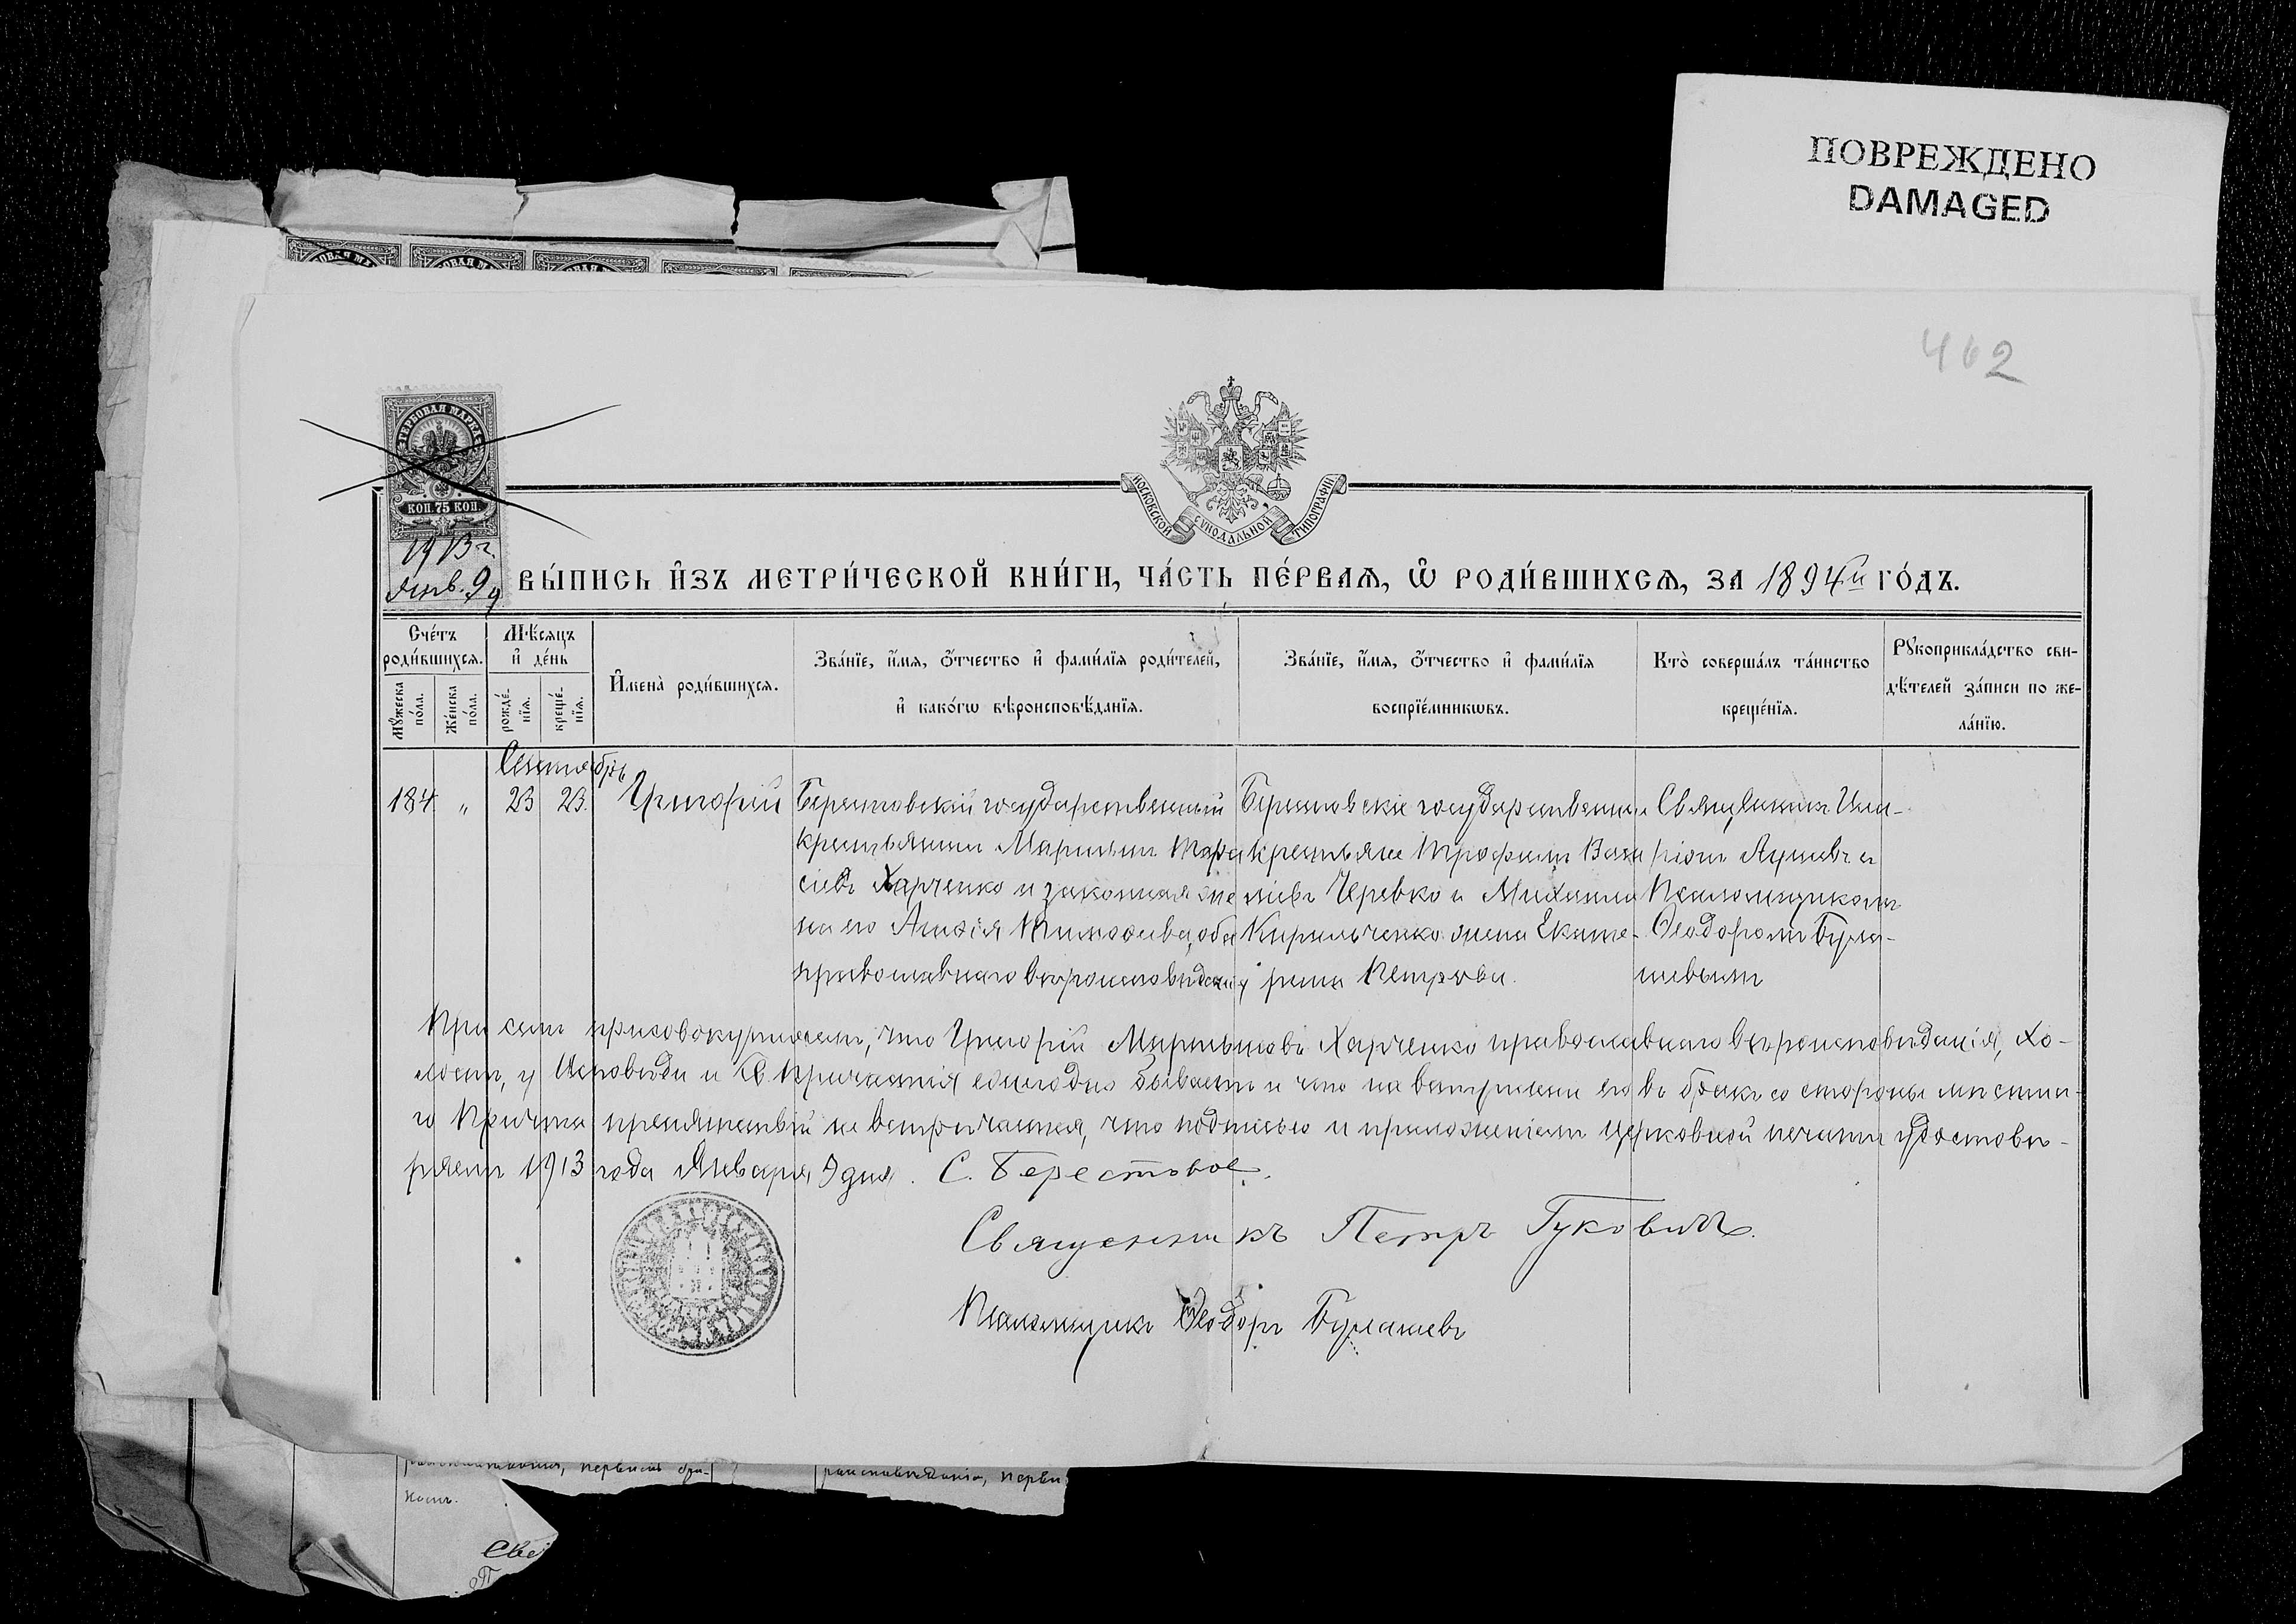 ПОВРЕЖДЕНО
DAMAGED
402
ГЕРБОВАЯ МАРКА
КОП. 75 КОП.
1913 г.
Янв. 9 д
МОСКОВСКОЙ СѴНОДАЛЬНОЙ ТИПОГРАФІИ
ВЫ́ПИСЬ И҆ЗЪ МЕТРИ́ЧЕСКОЙ КНИ́ГИ, ЧА́СТЬ ПЕ́РВАѦ, Ѡ҆ РОДИ́ВШИХСѦ, ЗА 1894й ГО́ДЪ.
Сче́тъ роди́вшихсѧ.
Мꙋ́жеска по́ла.
Же́нска по́ла.
Мѣ́сяцъ и҆ де́нь
рожде́нїѧ.
креще́нїѧ.
И҆мена̀ роди́вшихсѧ.
Зва́нїе, и҆́мѧ, ѻ҆́тчество и҆ фами́лїѧ роди́телей,
и҆ како́гѡ вѣроисповѣ́данїѧ.
Зва́нїе, и҆́мѧ, ѻ҆́тчество и҆ фами́лїѧ
воспрїе́мникѡвъ.
Кто̀ соверша́лъ та́инство
креще́нїѧ.
Рꙋкоприкла́дство сви-
дѣ́телей за́писи по же-
ла́нїю.
Сентябрь
184 „ 23 23. Григорій
Берестовскій государственный
крестьянинъ Мартинъ Тара
сіевъ Харченко и законная же
на его Агафія Тимофеева, оба
православнаго вѣроисповѣданія
Берестовскіе государственные
крестьяне Трофимъ Васи
ліевъ Черевко и Михаила
Кирильченко жена Екате-
рина Петрова.
Священникъ Ила-
ріонъ и
Псаломщикомъ
Ѳеодоромъ Бура-
шевымъ
При семъ присовокупляемъ, что Григорій Мартыновъ Харченко православнаго вѣроисповѣданія, хо-
лостъ, у Исповѣди и Св. Причастія ежегодно бываетъ и что на вступленіи его въ бракъ со стороны мѣстна-
го Причта препятствій не встрѣчается, что подписью и приложеніемъ церковной печати удостовѣ-
ряемъ 1913 года Января 9 дня. С. Берестовое.
Священникъ Петръ Гуковичъ.
Псаломщикъ Ѳеодоръ Бурашевъ